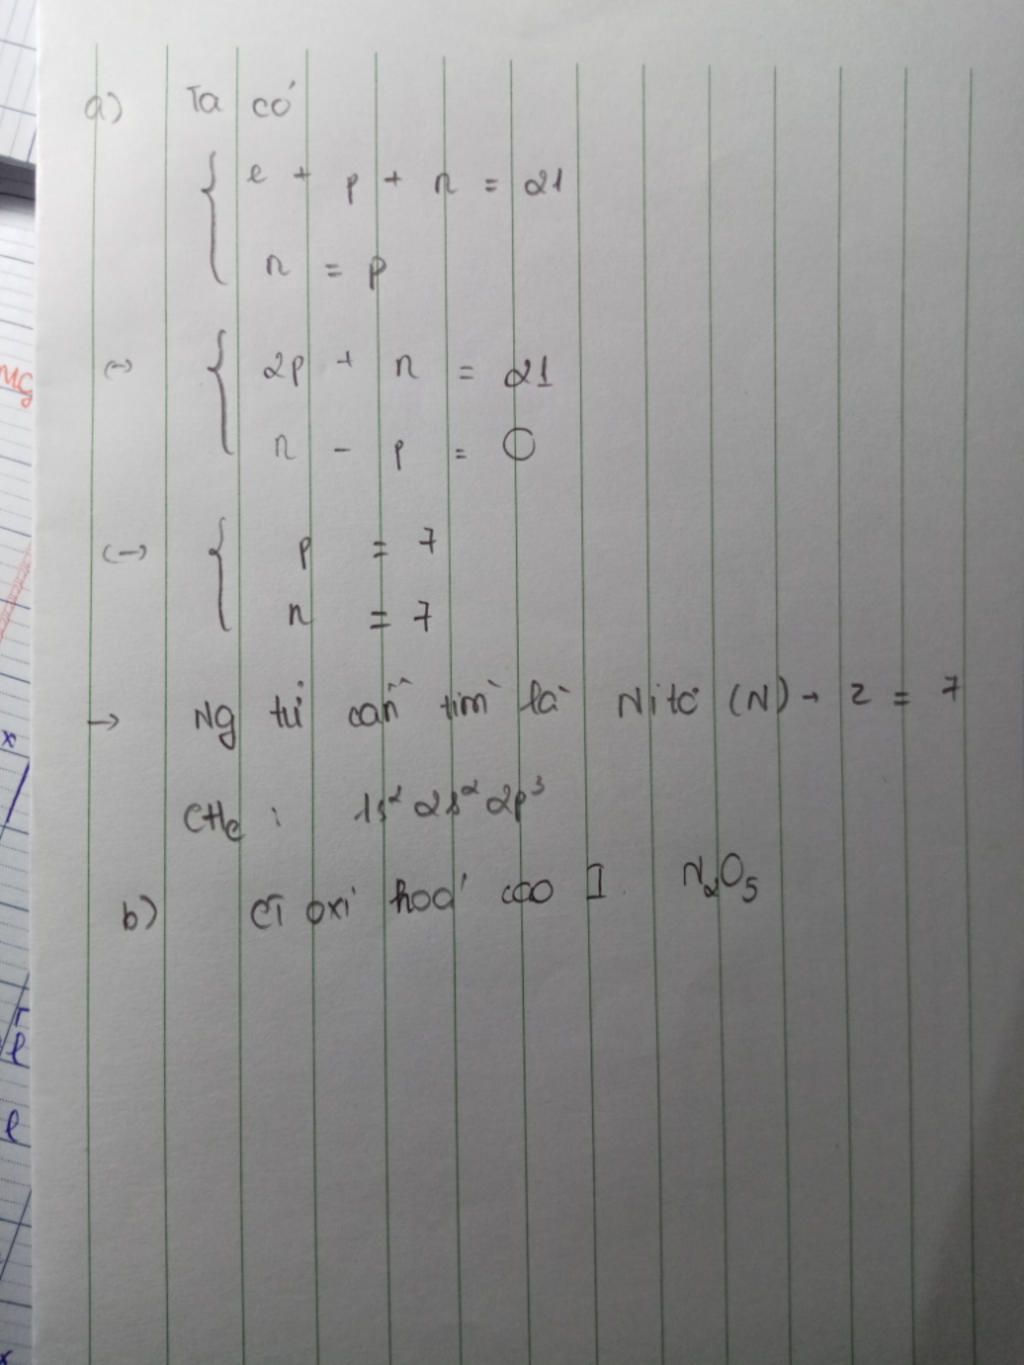 a) Ta có
e + p + n = 21
n = p
(-) 2p + n = 21
n - p = 0
(-) p = 7
n = 7
→ Ng tử cần tìm là Nitơ (N) - Z = 7
CHe : 1s² 2s² 2p³
b) CT oxi hoá cao I N₂O₅
MG
x
l
l
x